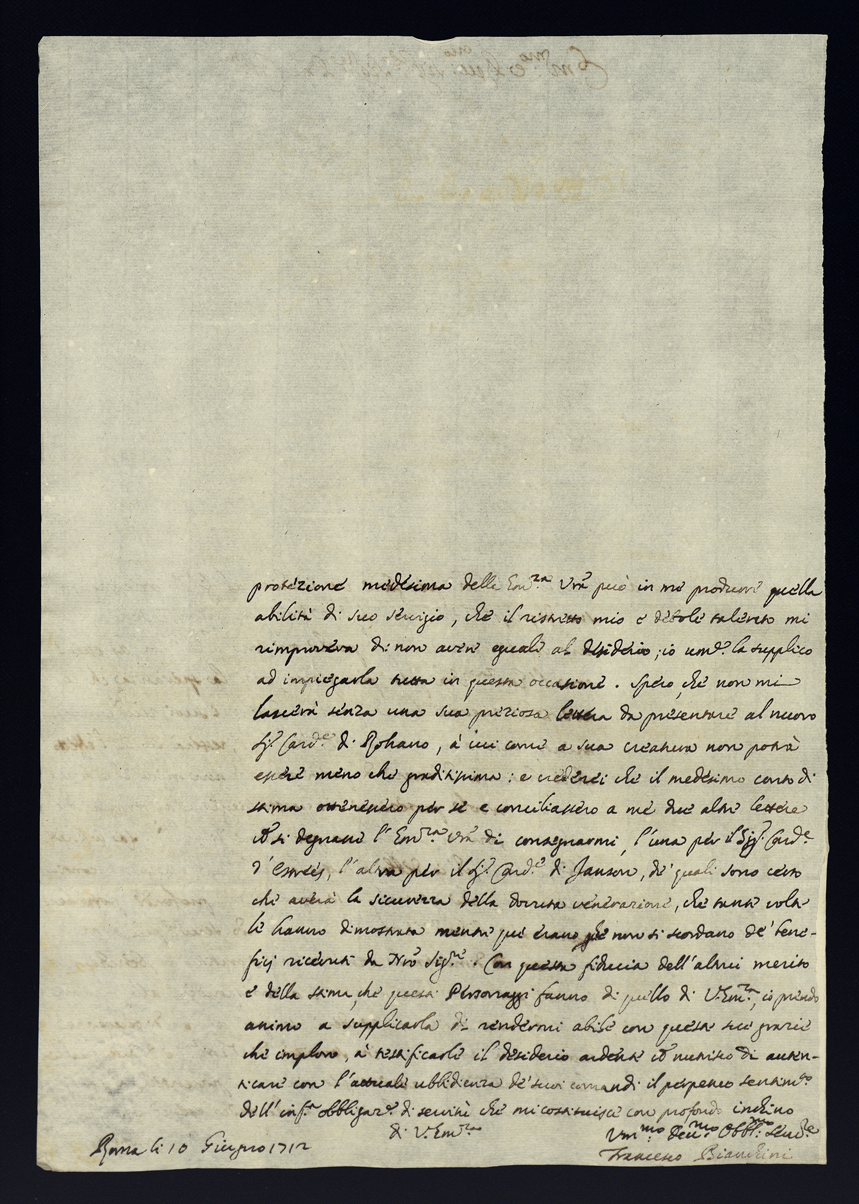 protezione medesima delle Em.za Vra può in me produrre quella
abilità di suo servizio, che il ristretto mio e debole talento mi
rimprovera di non avere eguale al desiderio; io um.e la supplico
ad impiegarla tutta in questa occasione. Spero, che non mi
lascierà senza una sua preziosa lettera da presentare al nuovo
Sig.r Card.e di Rohano, à cui come a sua creatura non potrà
essere meno che graditissima: e crederei che il medesimo conto di
stima ottenessero per sè e conciliassero a me due altre lettere
si degnasse l'Em.za Vra di consegnarmi, l'una per il Sig.r Card.e
d'Estrées, l'altra per il Sig.r Card.e di Janson, de' quali sono certo
che averà la sicurezza della dovuta venerazione, che tante volte
le hanno dimostrata mentre qui erano, che non si scordano de' bene-
ficj ricevuti da Nro Sig.re. Con questa fiducia dell'altrui merito
e della stima, che questi Personaggi fanno di quello di V. Em.za, io prendo
animo a supplicarla di rendermi abile con queste sue grazie
che imploro, à testificarle il desiderio ardente nutrito di auten-
ticare con l'attuale ubbidienza de' suoi comandi il perpetuo sentim.to
dell' inf.a obbligaz.e di servitù che mi costituisce con profondo inchino
di V. Em.za
Um.mo Dev.mo Obbl.mo Serv.e
Roma li 10 Giugno 1712
Francesco Bianchini